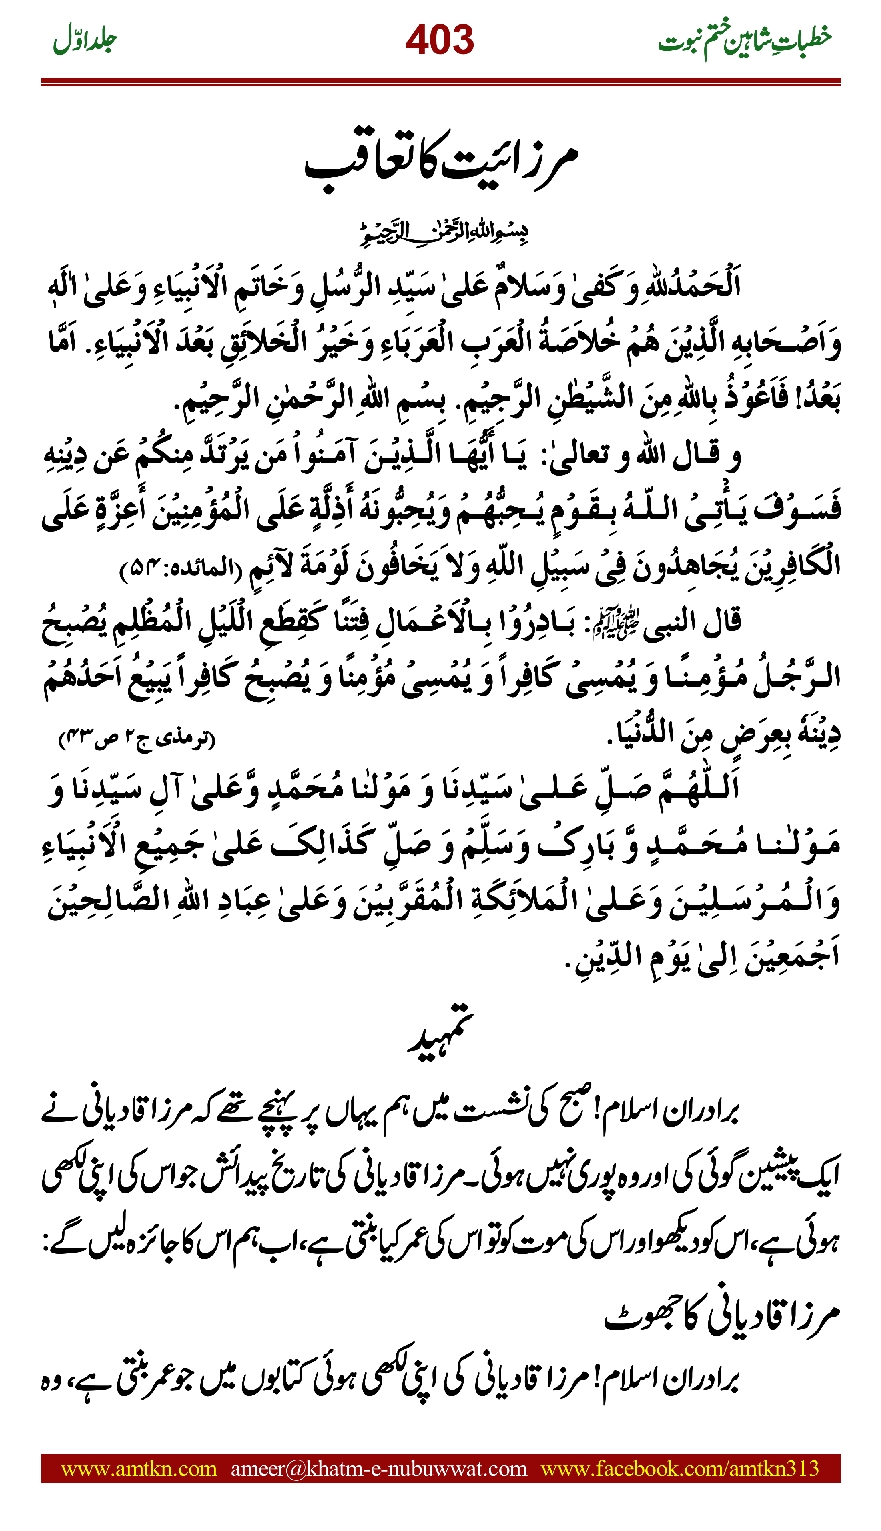 خطباتِ شاہین ختم نبوت
403
جلد اوّل
مرزائیت کا تعاقب
بِسْمِ اللهِ الرَّحْمٰنِ الرَّحِيْمِ
اَلْحَمْدُللهِ وَ كَفىٰ وَسَلامٌ عَلىٰ سَيِّدِ الرُّسُلِ وَخَاتَمِ الْاَنْبِيَاءِ وَعَلىٰ اٰلَهٖ
وَاَصْحَابِهِ الَّذِيْنَ هُمْ خُلاصَةُ الْعَرَبِ الْعَرَبَاءِ وَخَيْرُ الْخَلائِقِ بَعْدَ الْاَنْبِيَاءِ. اَمَّا
بَعْدُ! فَاَعُوْذُ بِاللهِ مِنَ الشَّيْطٰنِ الرَّجِيْمِ. بِسْمِ اللهِ الرَّحْمٰنِ الرَّحِيْمِ.
و قال الله و تعالىٰ: يَا أَيُّهَا الَّذِيْنَ آمَنُواْ مَن يَرْتَدَّ مِنكُمْ عَن دِيْنِهِ
فَسَوْفَ يَأْتِىْ اللّهُ بِقَوْمٍ يُحِبُّهُمْ وَيُحِبُّونَهُ أَذِلَّةٍ عَلَى الْمُؤْمِنِيْنَ أَعِزَّةٍ عَلَى
الْكَافِرِيْنَ يُجَاهِدُونَ فِىْ سَبِيْلِ اللّهِ وَلاَ يَخَافُونَ لَوْمَةَ لآئِمٍ (المائده:۵۴)
قال النبى ﷺ: بَادِرُوْا بِالْاَعْمَالِ فِتَنًا كَقِطَعِ الْلَيْلِ الْمُظْلِمِ يُصْبِحُ
الرَّجُلُ مُؤْمِنًا وَ يُمْسِىْ كَافِراً وَ يُمْسِىْ مُؤْمِنًا وَ يُصْبِحُ كَافِراً يَبِيْعُ اَحَدُهُم
دِيْنَهٗ بِعِرَضٍ مِنَ الدُّنْيَا. (ترمذی ج۲ ص۴۳)
اَللّٰهُمَّ صَلِّ عَلىٰ سَيِّدِنَا وَ مَوْلٰنا مُحَمَّدٍ وَّعَلىٰ آلِ سَيِّدِنَا وَ
مَوْلٰنا مُحَمَّدٍ وَّ بَارِکْ وَسَلِّمْ وَ صَلِّ كَذَالِکَ عَلىٰ جَمِيْعِ الْاَنْبِيَاءِ
وَالْمُرْسَلِيْنَ وَعَلىٰ الْمَلائِكَةِ الْمُقَرَّبِيْنَ وَعَلىٰ عِبَادِ اللهِ الصَّالِحِيْنَ
اَجْمَعِيْنَ اِلىٰ يَوْمِ الدِّيْنِ.
تمہید
برادران اسلام! صبح کی نشست میں ہم یہاں پر پہنچے تھے کہ مرزا قادیانی نے
ایک پیشین گوئی کی اور وہ پوری نہیں ہوئی۔ مرزا قادیانی کی تاریخ پیدائش جو اس کی اپنی لکھی
ہوئی ہے، اس کو دیکھو اور اس کی موت کو تو اس کی عمر کیا بنتی ہے، اب ہم اس کا جائزہ لیں گے:
مرزا قادیانی کا جھوٹ
برادران اسلام! مرزا قادیانی کی اپنی لکھی ہوئی کتابوں میں جو عمر بنتی ہے، وہ
www.amtkn.com ameer@khatm-e-nubuwwat.com www.facebook.com/amtkn313